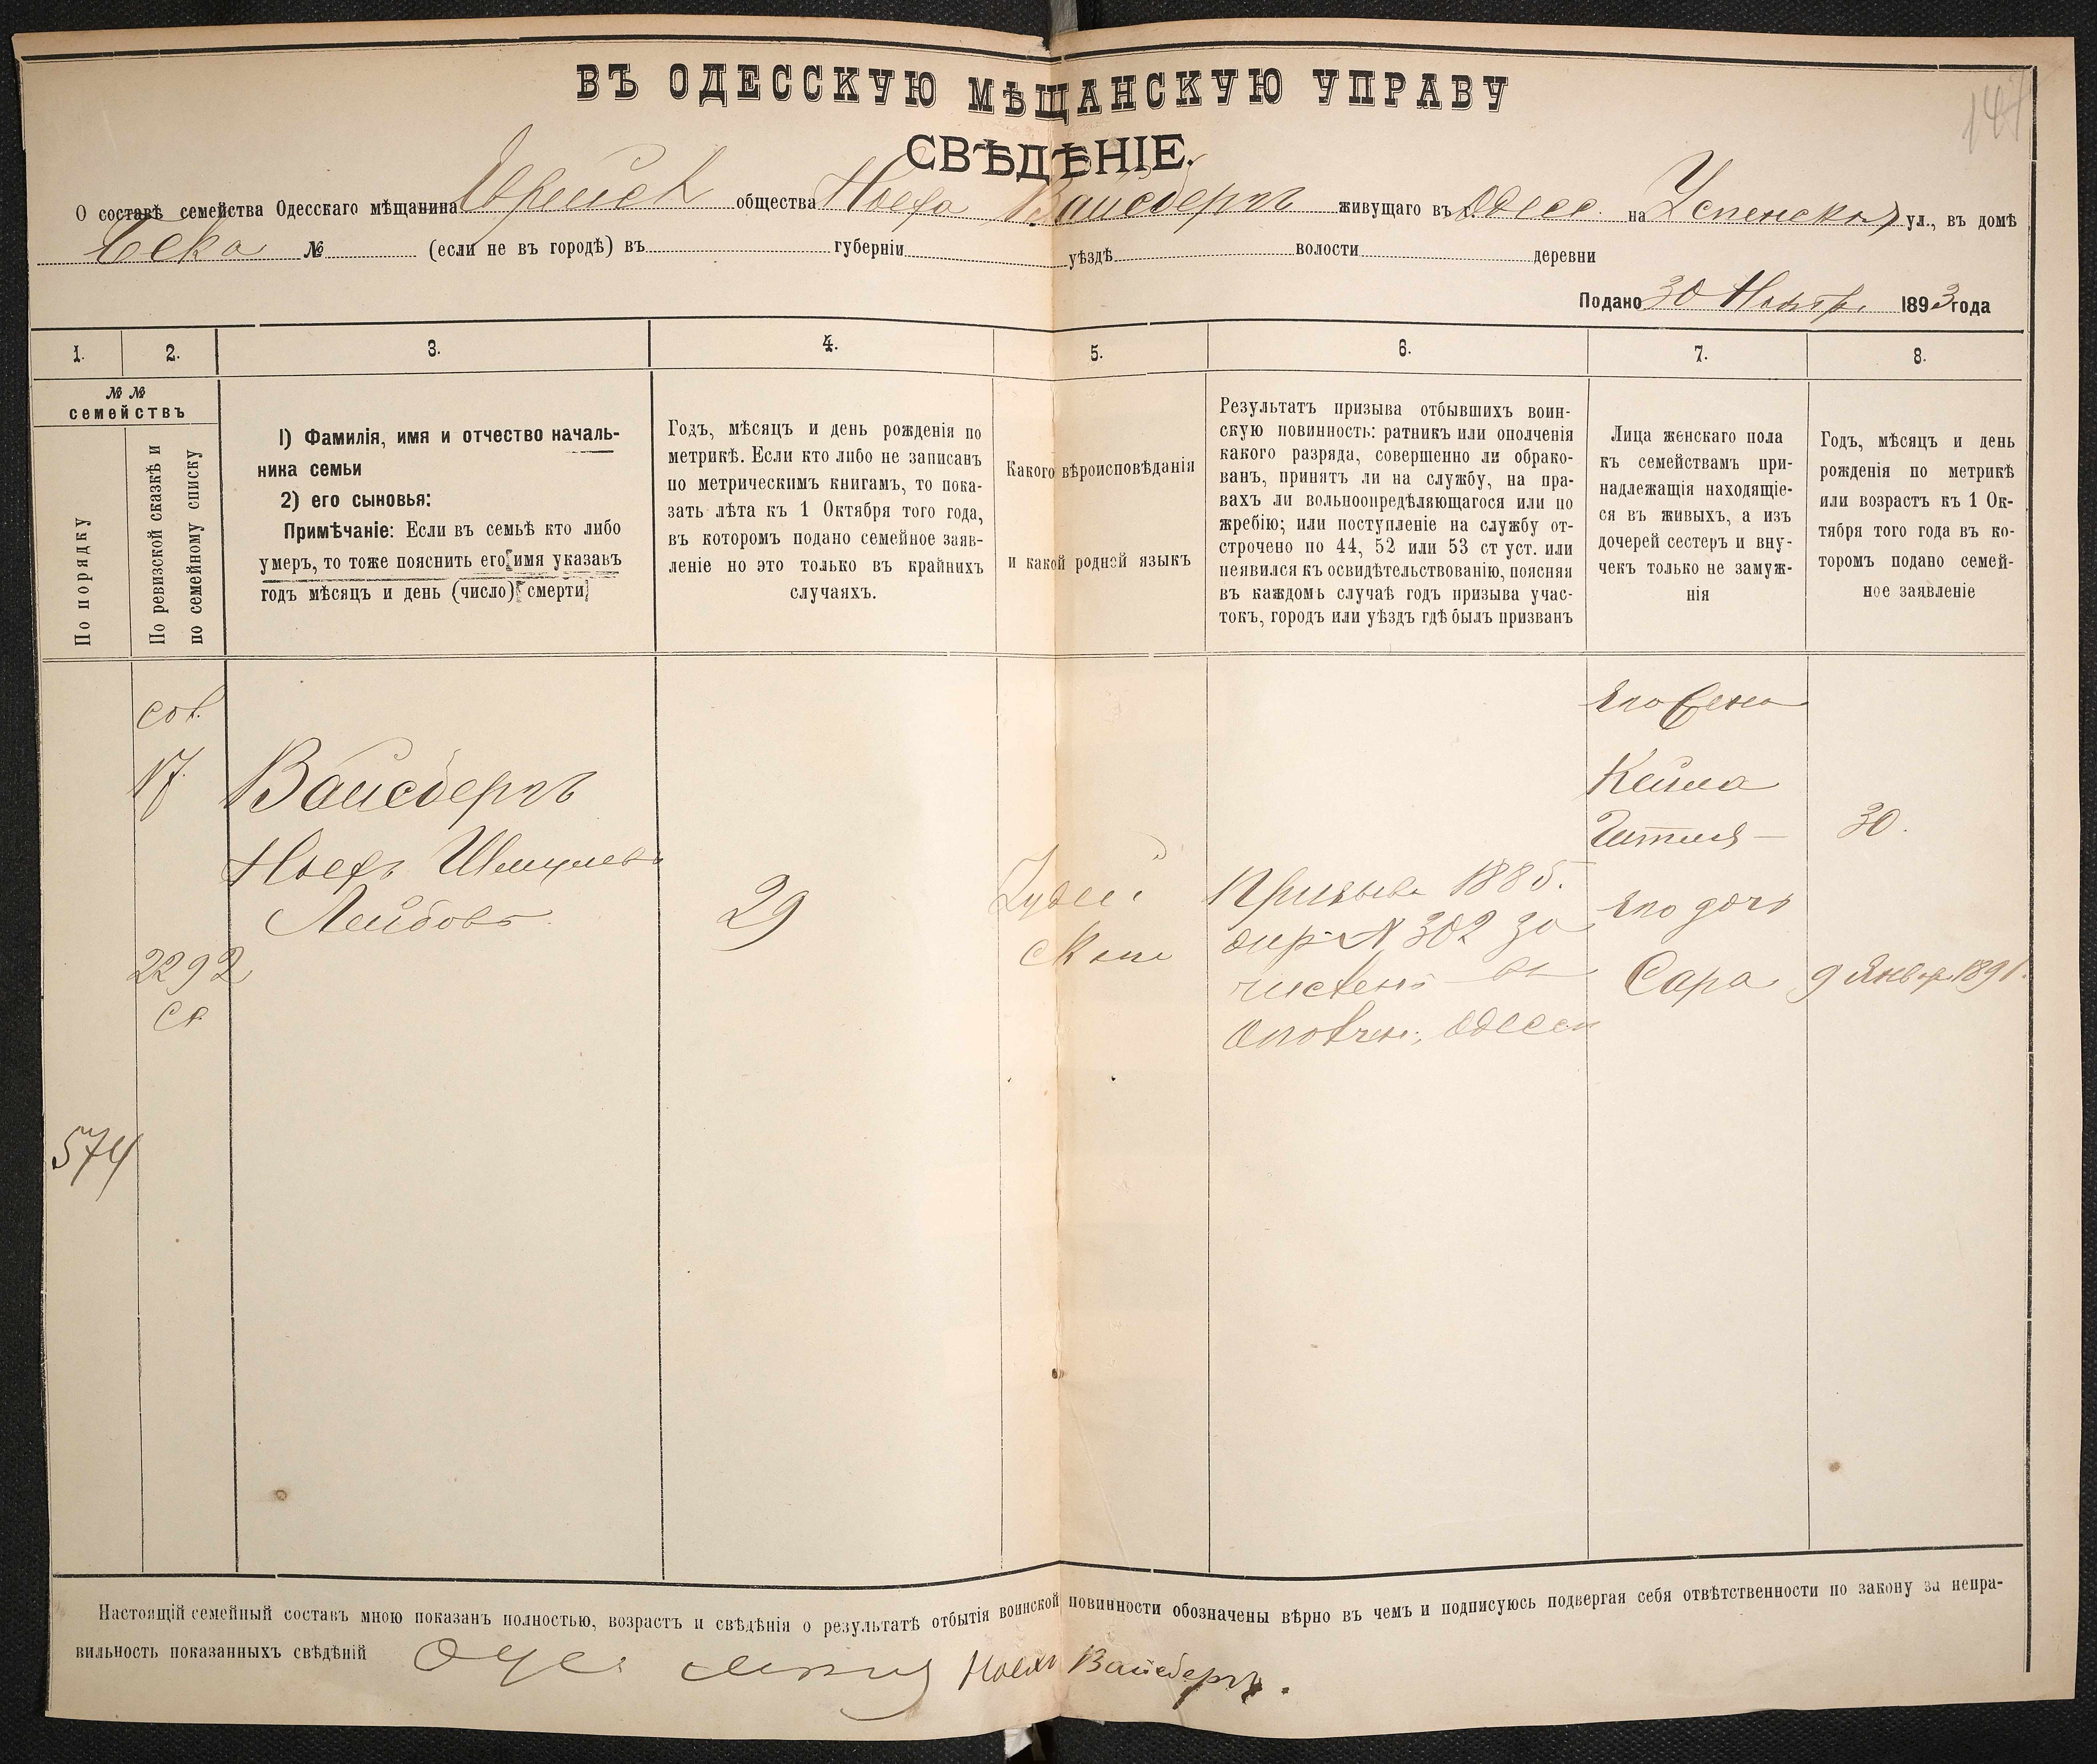 ВЪ ОДЕССКУЮ МѢЩАНСКУЮ УПРАВУ
147
СВѢДѢНІЕ.
О составѣ семейства Одесскаго мѣщанина Еврейск общества Ноефа Вайсбергъ живущаго въ Одесс. на Успенской ул., въ домѣ
№ (если не въ городѣ) въ губерніи уѣздѣ волости деревни
Подано 30 Ноябр. 1893 года
1. 2. 3. 4. 5. 6. 7. 8.
№ № семействъ
По порядку
По ревизской сказкѣ и по семейному списку
1) Фамилія, имя и отчество началь-
ника семьи
2) его сыновья:
Примѣчаніе: Если въ семьѣ кто либо
умеръ, то тоже пояснить его имя указавъ
годъ мѣсяцъ и день (число) смерти
Годъ, мѣсяцъ и день рожденія по
метрикѣ. Если кто либо не записанъ
по метрическимъ книгамъ, то пока-
зать лѣта къ 1 Октября того года,
въ которомъ подано семейное заяв-
леніе но это только въ крайнихъ
случаяхъ.
Какого вѣроисповѣданія
и какой родной языкъ
Результатъ призыва отбывшихъ воин-
скую повинность: ратникъ или ополченія
какого разряда, совершенно ли обрако-
ванъ, принятъ ли на службу, на пра-
вахъ ли вольноопредѣляющагося или по
жребію; или поступленіе на службу от-
строчено по 44, 52 или 53 ст уст. или
неявился къ освидѣтельствованію, поясняя
въ каждомъ случаѣ годъ призыва учас-
токъ, городъ или уѣздъ гдѣ былъ призванъ
Лица женскаго пола
къ семействамъ при-
надлежащія находящіе-
ся въ живыхъ, а изъ
дочерей сестеръ и вну-
чекъ только не замуж-
нія
Годъ, мѣсяцъ и день
рожденія по метрикѣ
или возрастъ къ 1 Ок-
тября того года въ ко-
торомъ подано семей-
ное заявленіе
17
2292
574
Вайсбергъ
Ноефъ Шмулевъ
Лейбовъ
29
Іудей
ске
Призыва 1885.
жер № 302 за
числен въ
Ополчен. Одесса
Его жена
Кейла
Гитля —
30.
Его дочь
Сара
9 Январ 1891.
Настоящій семейный составъ мною показанъ полностью, возрастъ и свѣдѣнія о результатѣ отбытія воинской повинности обозначены вѣрно въ чемъ и подписуюсь подвергая себя отвѣтственности по закону за непра-
вильность показанныхъ свѣдѣній
Вайсбергъ.